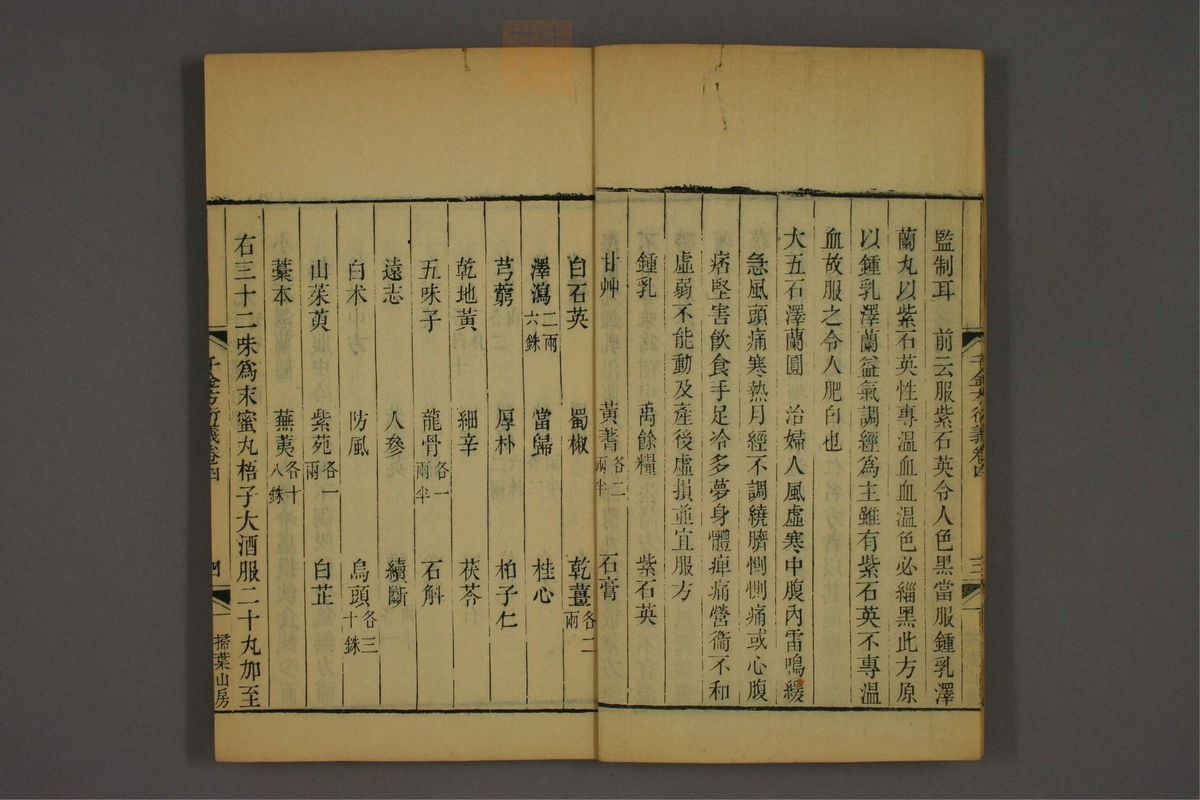 監制耳　前云服紫石英令人色黑當服鍾乳澤
蘭丸以紫石英性專温血血温色必緇黑此方原
以鍾乳澤蘭益氣調經爲主雖有紫石英不專温
血故服之令人肥白也
大五石澤蘭圓　治婦人風虛寒中腹內雷鳴緩
急風頭痛寒熱月經不調繞臍惻惻痛或心腹
痞堅害飮食手足冷多夢身體痺痛營衞不和
虛弱不能動及產後虛損並宜服方
鍾乳　禹餘糧　紫石英
甘艸　黃蓍各二兩半　石膏
白石英　蜀椒　乾薑各二兩
澤瀉二兩六銖　當歸　桂心
芎藭　厚朴　柏子仁
乾地黃　細辛　茯苓
五味子　龍骨各一兩半　石斛
遠志　人參　續斷
白术　防風　烏頭各三十銖
山茱萸　紫苑各一兩　白芷
藁本　蕪荑各十八銖
右三十二味爲末蜜丸梧子大酒服二十丸加至
千金方衍義卷四　四　掃葉山房